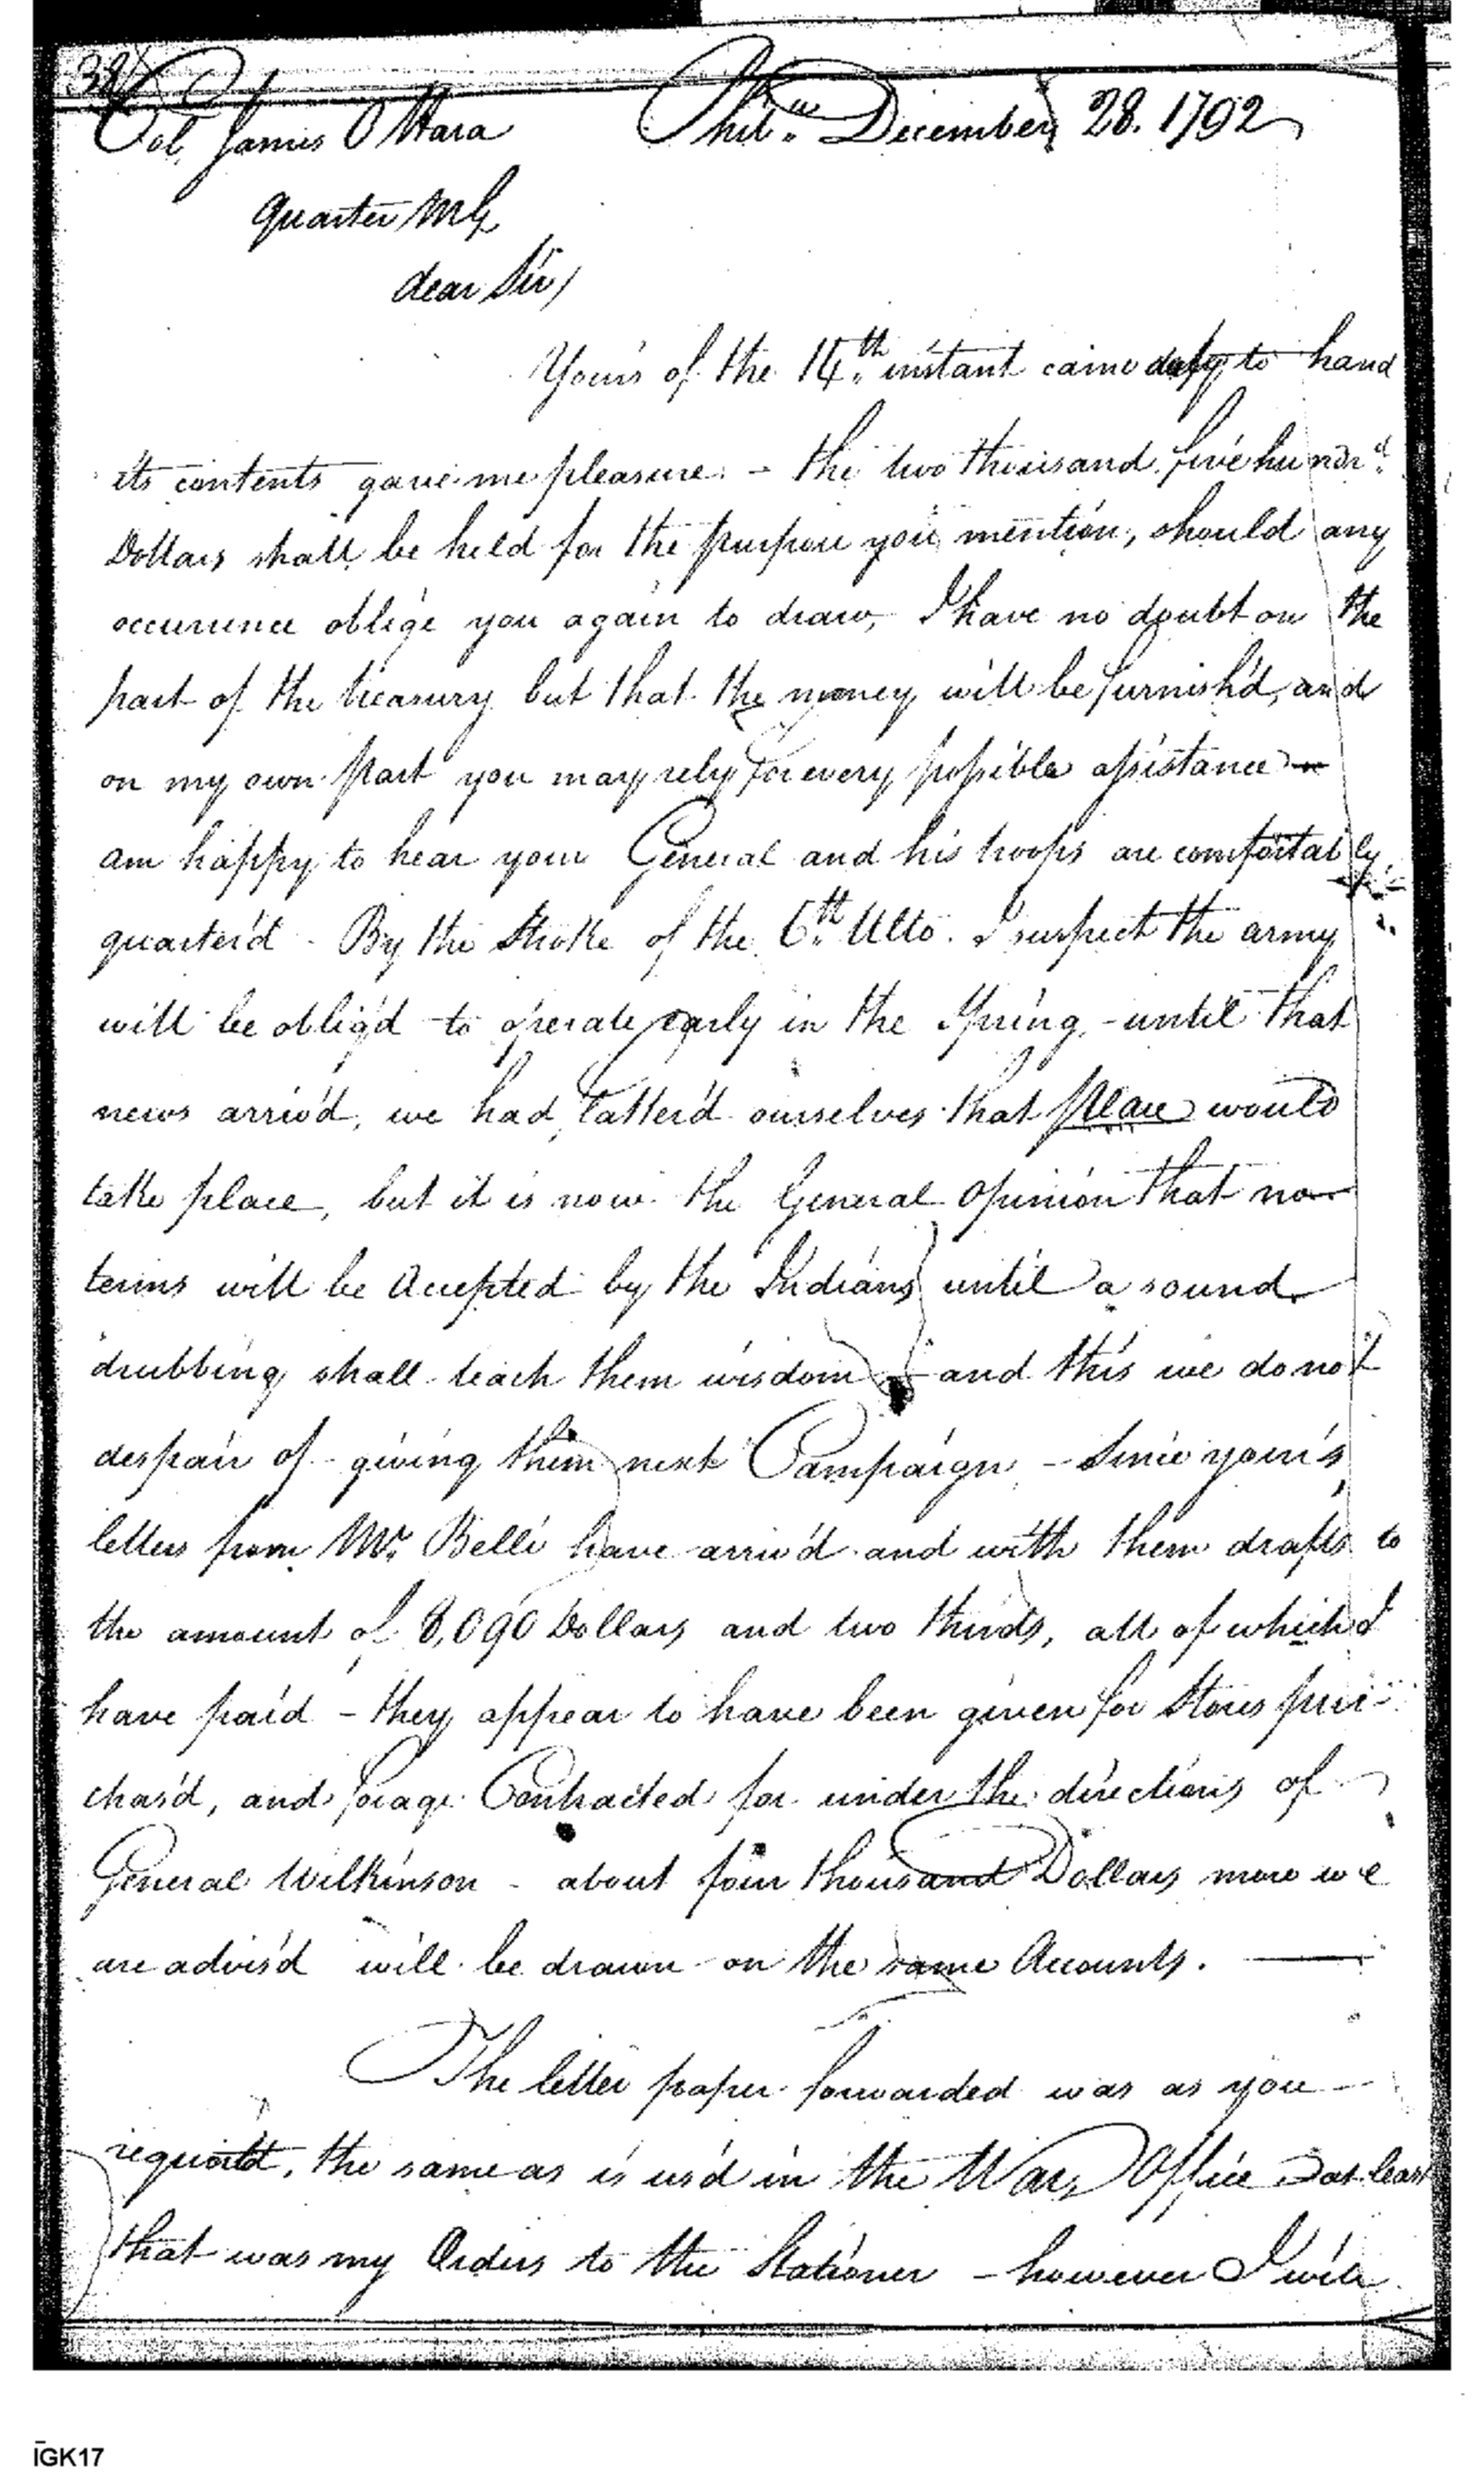 38
Col. James O Hara Phila. December 28. 1792
Quarter M G
dear Sir,
Your's of the 14th. instant came duly to hand
its contents gave me pleasure. - The two thousand five hundrd.
Dollars shall be held for the purpose you mention, should any
occurrence oblige you again to draw, I have no doubt on the
part of the treasury but that the money will be furnish'd, and
on my own part you may rely for every possible assistance -
am happy to hear your General and his troops are comfortably
quarter'd - By the Stroke of the 6th. Ulto. I suspect the army
will be oblig'd to operate early in the Spring, - until that
news arriv'd, we had flatter'd ourselves that peace would
take place, but it is now the General Opinion that no
terms will be Accepted by the Indians until a sound
drubbing shall teach them wisdom - and this we do not
despair of giving them next Campaign - Since your's,
letters from Mr. Belli have arriv'd and with them drafts to
the amount of 8,090 Dollars and two thirds, all of which I
have paid - they appear to have been given for Stores pur-
chas'd, and forage Contracted for under the directions of
General Wilkinson - about four thousand Dollars more we
are advis'd will be drawn on the same Accounts. —
The letter paper forwarded was as you
, the same as is us'd in the War Office at least
that was my Orders to the Stationer - however I will
IGK17